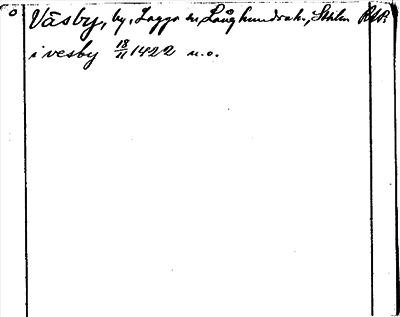 Väsby, by, Lagga sn, Långhundra h., Sthlm RAP.
i vesby 18/11 1422 u.o.